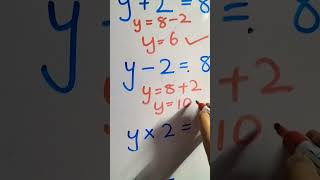 y + 2 = 8
y = 8 - 2
y = 6 ✓
y - 2 = 8
y = 8 + 2
y = 10
y × 2 =